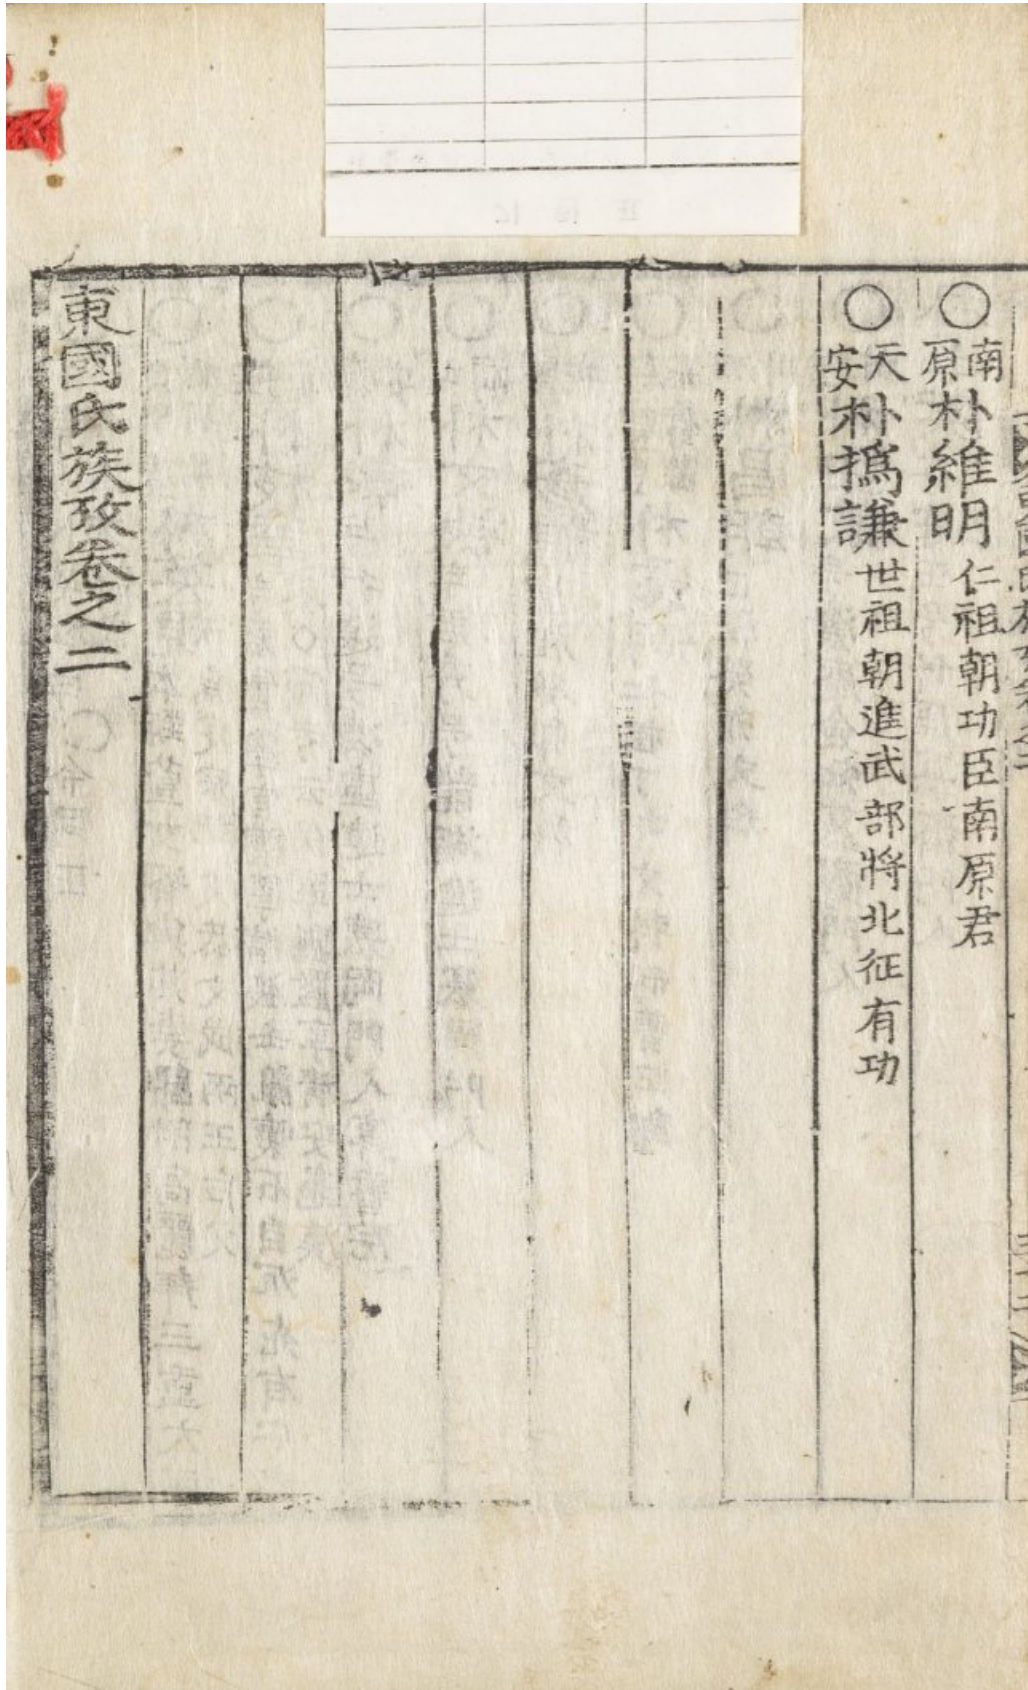 ○南原朴維明仁祖朝功臣南原君
○天安朴撝謙世祖朝進武部將北征有功
東國氏族攷卷之二